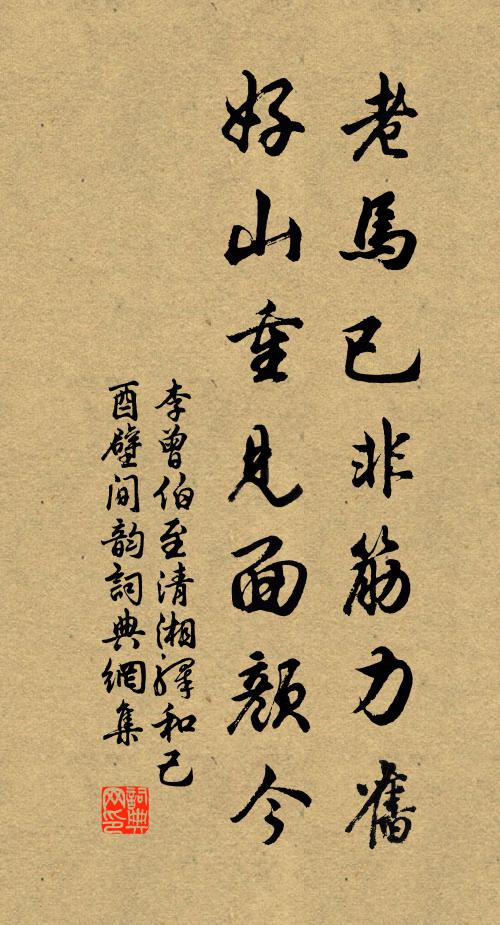 老馬已非筋力舊
好山重見面顏今
李曾伯至清湘驛和己
酉壁间韵詞典網集
詞典网印